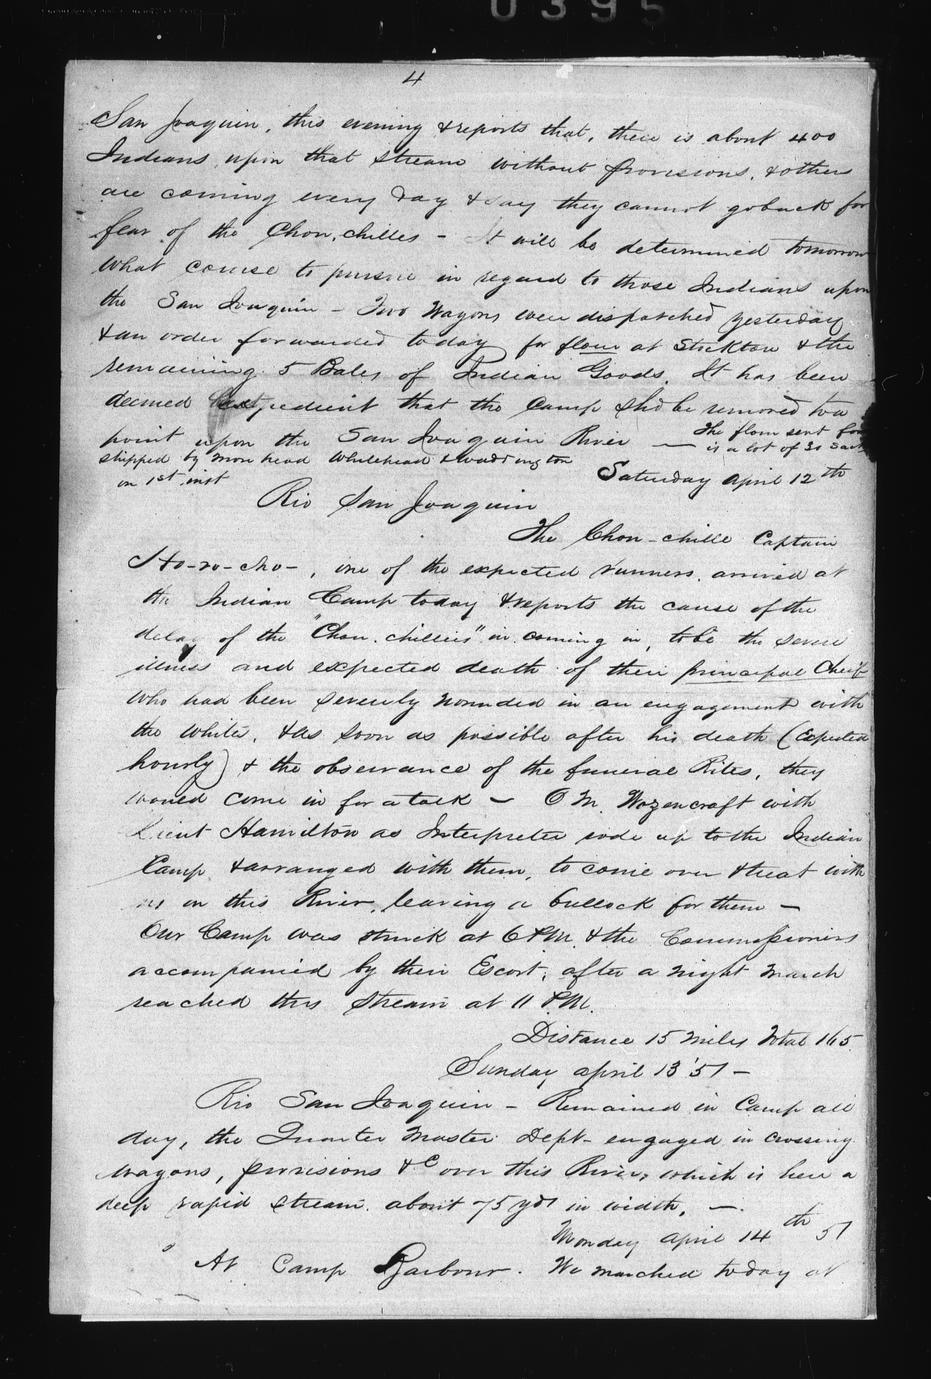 0395
4
San Joaquin, this evening & reports that, there is about 400
Indians upon that stream without provisions, & others
are coming every day & say they cannot go back for
fear of the Chou, chilles - It will be determined tomorrow
what course to pursue in regard to those Indians upon
the San Joaquin - Two Wagons were dispatched yesterday
& an order forwarded today for flour at Stockton & the
remaining 5 Bales of Indian Goods. It has been
deemed expedient that the Camp shd be removed to a
point upon the San Joaquin River — The flour sent
is a lot of 31
shipped by Whitehead & Waddington
on 1st inst
Saturday April 12th
Rio San Joaquin
The Chou-chille Captain
Ho-ro-cho-, one of the expected runners, arrived at
the Indian Camp today & reports the cause of the
delay of the "Chou. chillies" in coming in, to be the severe
illness and expected death of their principal Cheif
who had been severely wounded in an engagement with
the whites, & as soon as possible after his death (Expected
hourly) & the observance of the funeral Rites, they
would come in for a talk - O M. Wozencraft with
Lieut Hamilton as Interpreter rode up to the Indian
Camp & arranged with them, to come over & treat with
us on this River, leaving a bullock for them -
Our Camp was struck at 6 P.M. & the Commissioners
accompanied by their Escort, after a night march
reached this stream at 11 P.M.
Distance 15 miles Total 165
Sunday April 13 '51 -
Rio San Joaquin - Remained in Camp all
day, the Quarter Master Dept- engaged in crossing
wagons, provisions &c over this River, which is here a
deep rapid stream about 75 yds in width, -
Monday April 14th 51
At Camp Barbour. We marched today at